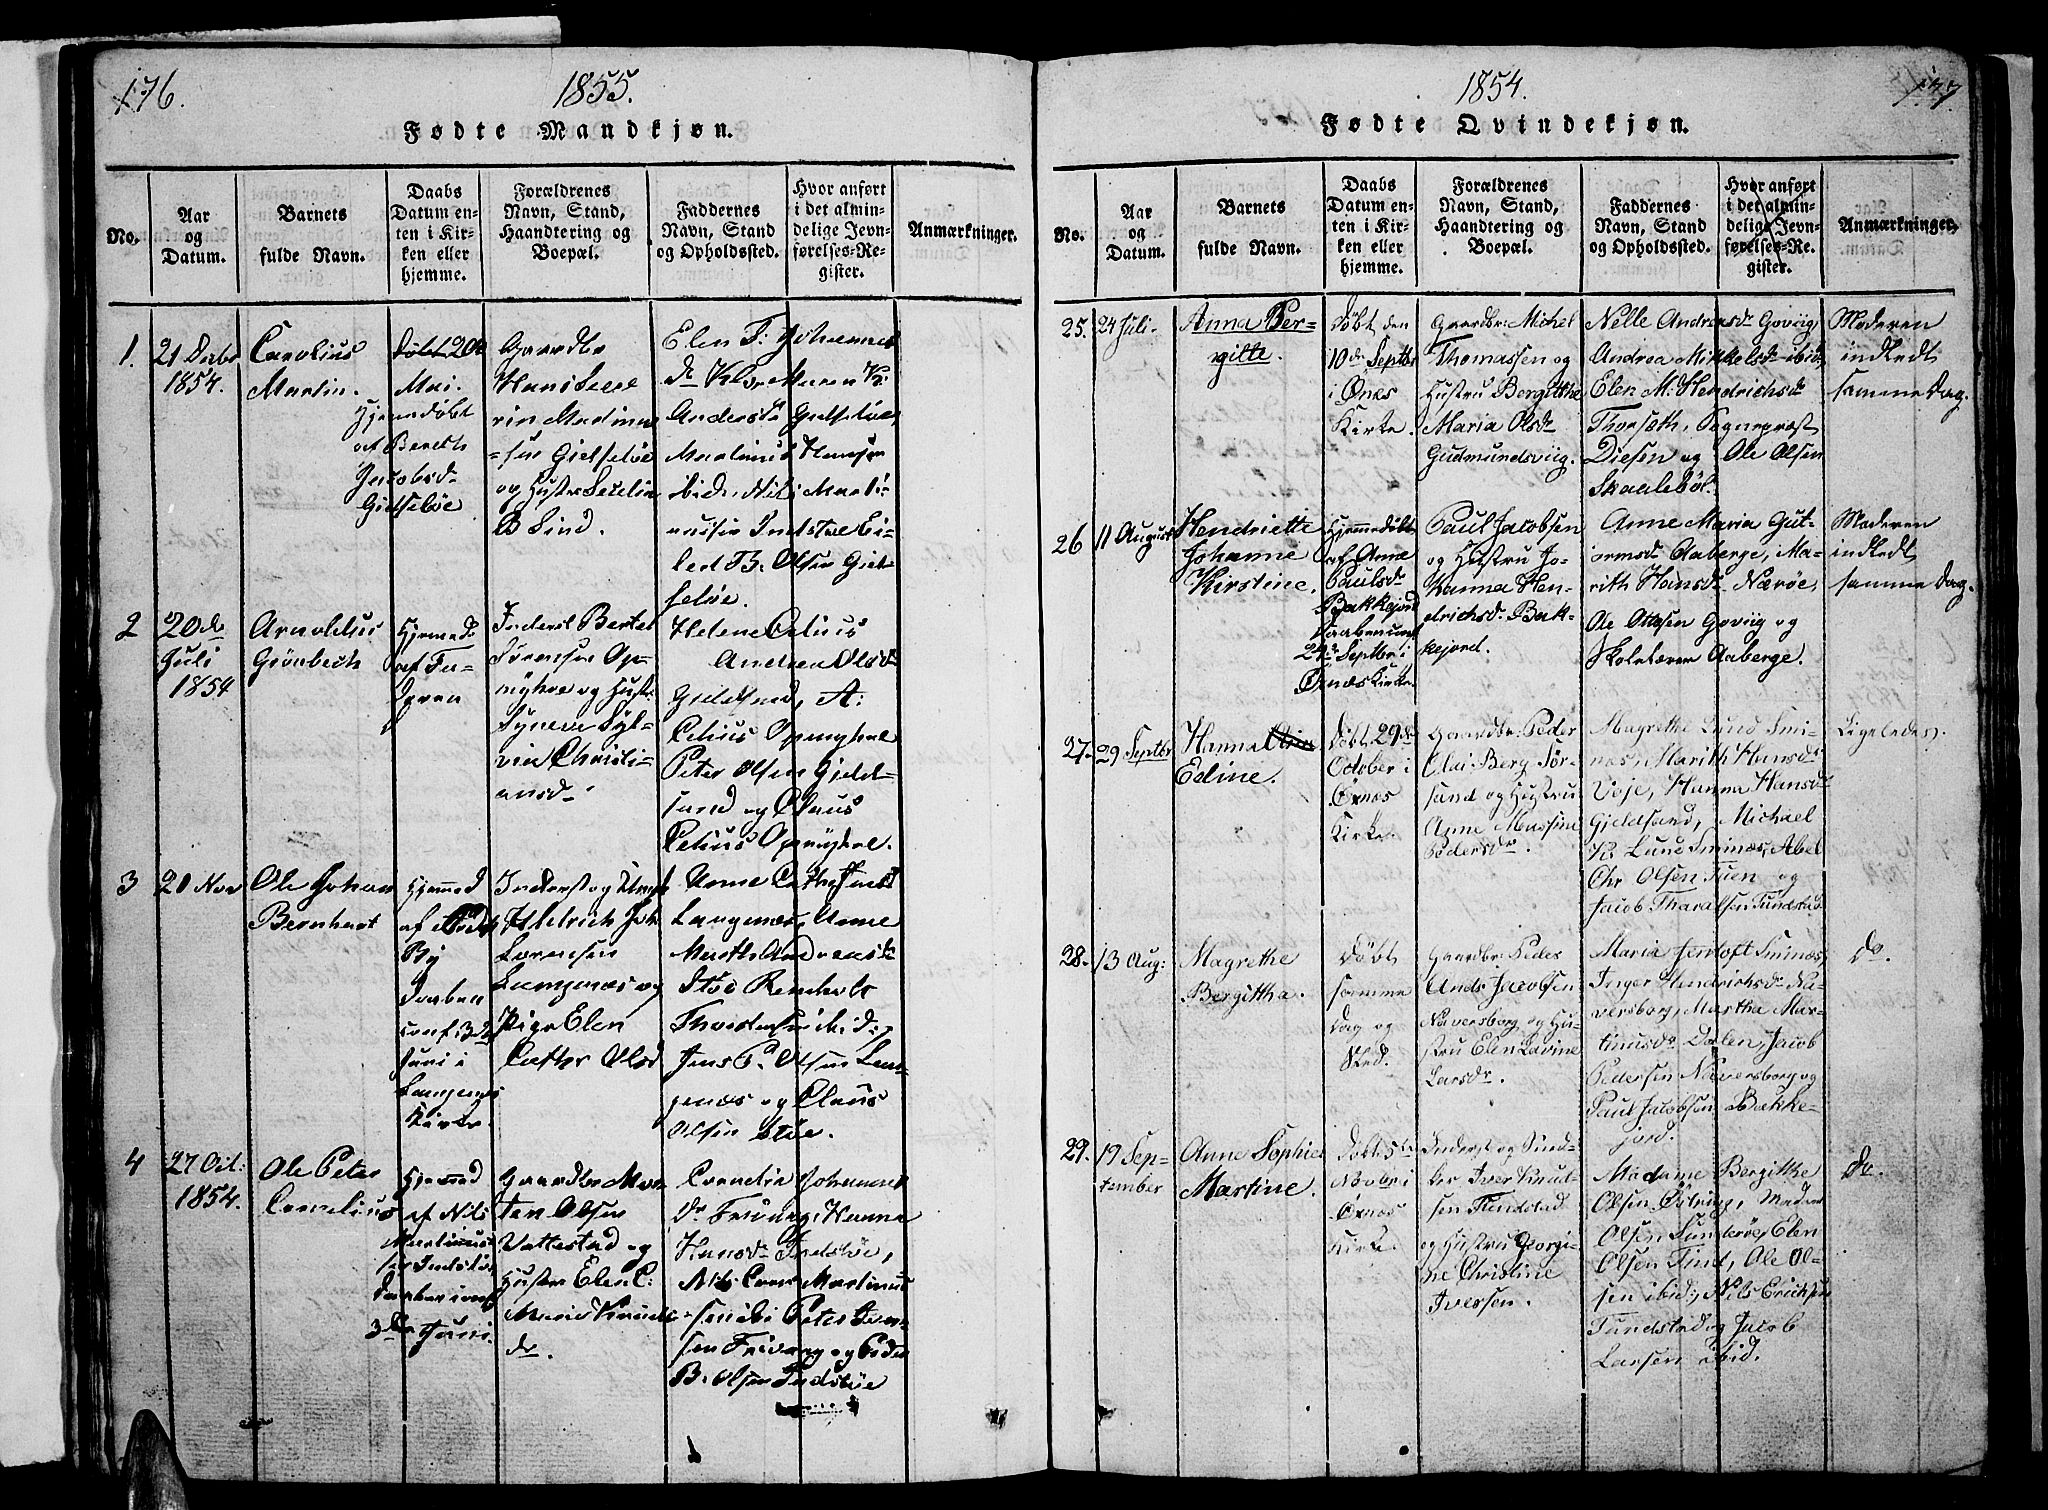 176.
1855.
Fødte Mandkjøn.
No.
Aar
og
Datum.
Barnets
fulde Navn.
Daabs
Datum en-
ten i Kir-
ken eller
hjemme.
Forældrenes
Navn, Stand,
Haandtering og
Boepæl.
Faddernes
Navn, Stand
og Opholdssted.
Hvor anført
i det almin-
delige Jevn-
førelses-Re-
gister.
Anmærkninger.
1.
21 Decbr
1854.
Carolius
Martin.
Døbt 20de
Mai.
Hjemmedøbt
af Bereth
Jacobsdr
Gidsløe
Gaardbr
Hans
Martinus
sen Gidsløe
og Hustr
B Lind.
Elen F: Johannes
dr
Andersdr Gidsløe,
Martinus Hansen
ibid, Nils Marti-
nussen Indstøe Ei-
led B. Olsen Gids-
løe.
2
20de
Juli
1854
Arnoldus
Grønbech
Hjemmed
af Fa-
deren
Inderst Bertel
Sørensen Op-
myhre og Hust:
Syneve Syl-
via Christi-
ansdr
Helene Celius
Andrea Olsdr
Gjeldsand, A:
Celius Opmyhre
Peter Olsen Gjeld-
sand og Claus
Celius Opmyhre.
3
21 Nov
Ole Johan
Bernhart
Hjemmed
af
By
Daaben
conf. 3de
Juni i
Langenes
Kirke.
Inderst og
Heldrich Joh
Lorensen
Langenæs og
Pige Elen
Cathr Olsd
Anne Cath
Langenæs, Anne
Marth Andreasdr
Støe Renholt
Thoidensen ibid,
Jens P. Olsen Lan-
genæs og Claus
Olsen Støe.
4
27 Oct:
1854.
Ole Peter
Cornelius
Hjemmed
af Nils
Martinus-
sen Indstøe
Daaben conf
3die Juni.
Gaardbr Mor-
ten Olsen
Vattestad og
Hustr Elen C:
Marie Knuds-
dr.
Cornelia Johannes
dr Frivaag, Hanna
Hansdr Indstøe,
Nils Corn Martinus
sen ibi Peter Iver-
sen Frivaag og Peder
B. Olsen Indstøe
177
1854.
Fødte Qvindekjøn.
No.
Aar
og
Datum.
Barnets
fulde Navn.
Daabs
Datum en-
ten i Kir-
ken eller
hjemme.
Forældrenes
Navn, Stand,
Haandtering og
Boepæl.
Faddernes
Navn, Stand
og Opholdssted.
Hvor anført
i det almin-
delige Jevn-
førelses-Re-
gister.
Anmærkninger.
25.
24 Juli.
Anna Ber-
gitte.
Døbt den
10de Septbr
i Ørnes
Kirke.
Gaardbr: Michel
Thomassen og
Hustru Bergithe
Maria Olsdr
Gudmundsviig.
Nelle Andreasdr Goviig,
Andrea Mikkelsdr ibid,
Elen M: Hendrichsdr
Thorseth, Sognepræst
Diesen og Ole Olsen
Skaalebøl.
Moderen
indledt
samme Dag.
26
11 August
Hendriette
Johanne
Kirstine.
Hjemmedøbt
af Anne
Paulsdr
Bakkejord
Daaben conf
24de Septbr i
Ørnæs Kirke.
Paul Jacobsen
og Hustru Jo-
hanna Hen-
drichsdr Bak-
kejord.
Anne Maria Gut-
ormsdr Aaberge, Ma-
rith Hansdr Nærøe,
Ole Ottesen Goviig og
Skolelærer Aaberge.
Moderen
indledt
samme Dag.
27.
29 Septbr
Hanna
Edine.
Døbt 29de
October i
Ørnes
Kirke.
Gaardbr: Peder
Clai Berg Sør-
sand og Hustru
Anne Massine
Pedersdr.
Magrethe Lund Smi-
næs, Marith Hansdr
Veje, Hanna Hansdr
Gjeldsand, Michael
K. Lund Sminæs, Abel
Chr Olsen Tuen og
Jacob Tharalsen Tundstad.
Ligeledes.
28.
13 Aug:
Magrethe
Bergittha.
Døbt
samme
Dag og
Sted.
Gaardbr: Peder
Ands Jacobsen
Naversborg og Hu-
stru Elen Lavine
Larsdr.
Maria Jentoft Sminæs,
Inger Hendrichsdr Na-
versborg, Martha Mar-
tinusdr Dalen, Jacob
Pedersen Naversborg og
Paul Jacobsen Bakke-
jord.
do.
29.
19 Sep-
tember
Anne Sophie
Martine.
Døbt 5te
Novbr i
Ørnes
Kirke.
Inderst og Snid-
ker Iver Knud-
sen Tundstad
og Hustru Georgi-
ne Christine
Iversen.
Madame Bergitthe
Olsen
Olsen Sunderøe, Elen
Olsen Tind, Ole Ol-
sen ibid, Nils Erichsen
Tundstad og Jacob
Larsen ibid.
do.